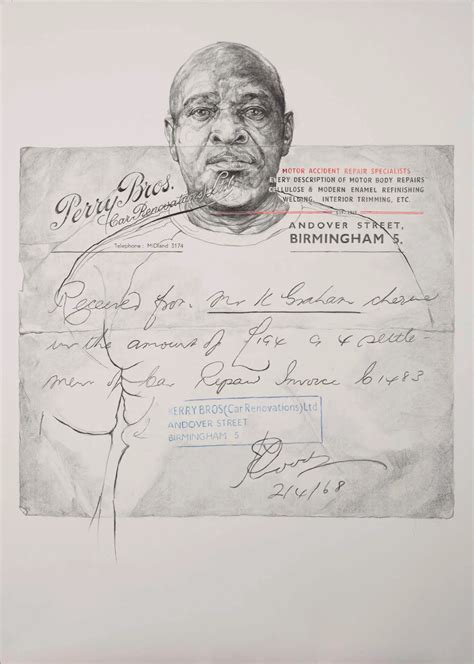 Perry Bros.
Car Renovations Ltd
Telephone: MIDland 5174
MOTOR ACCIDENT REPAIR SPECIALISTS
EVERY DESCRIPTION OF MOTOR BODY REPAIRS
CELLULOSE & MODERN ENAMEL REFINISHING
WELDING, INTERIOR TRIMMING, ETC.
ANDOVER STREET,
BIRMINGHAM 5.
Received for. Mr K Graham cheque
in the amount of £194 as a settle-
men of Car Repair Invoice 61483
KERRY BROS(Car Renovations)Ltd
ANDOVER STREET
BIRMINGHAM 5
2/4/68